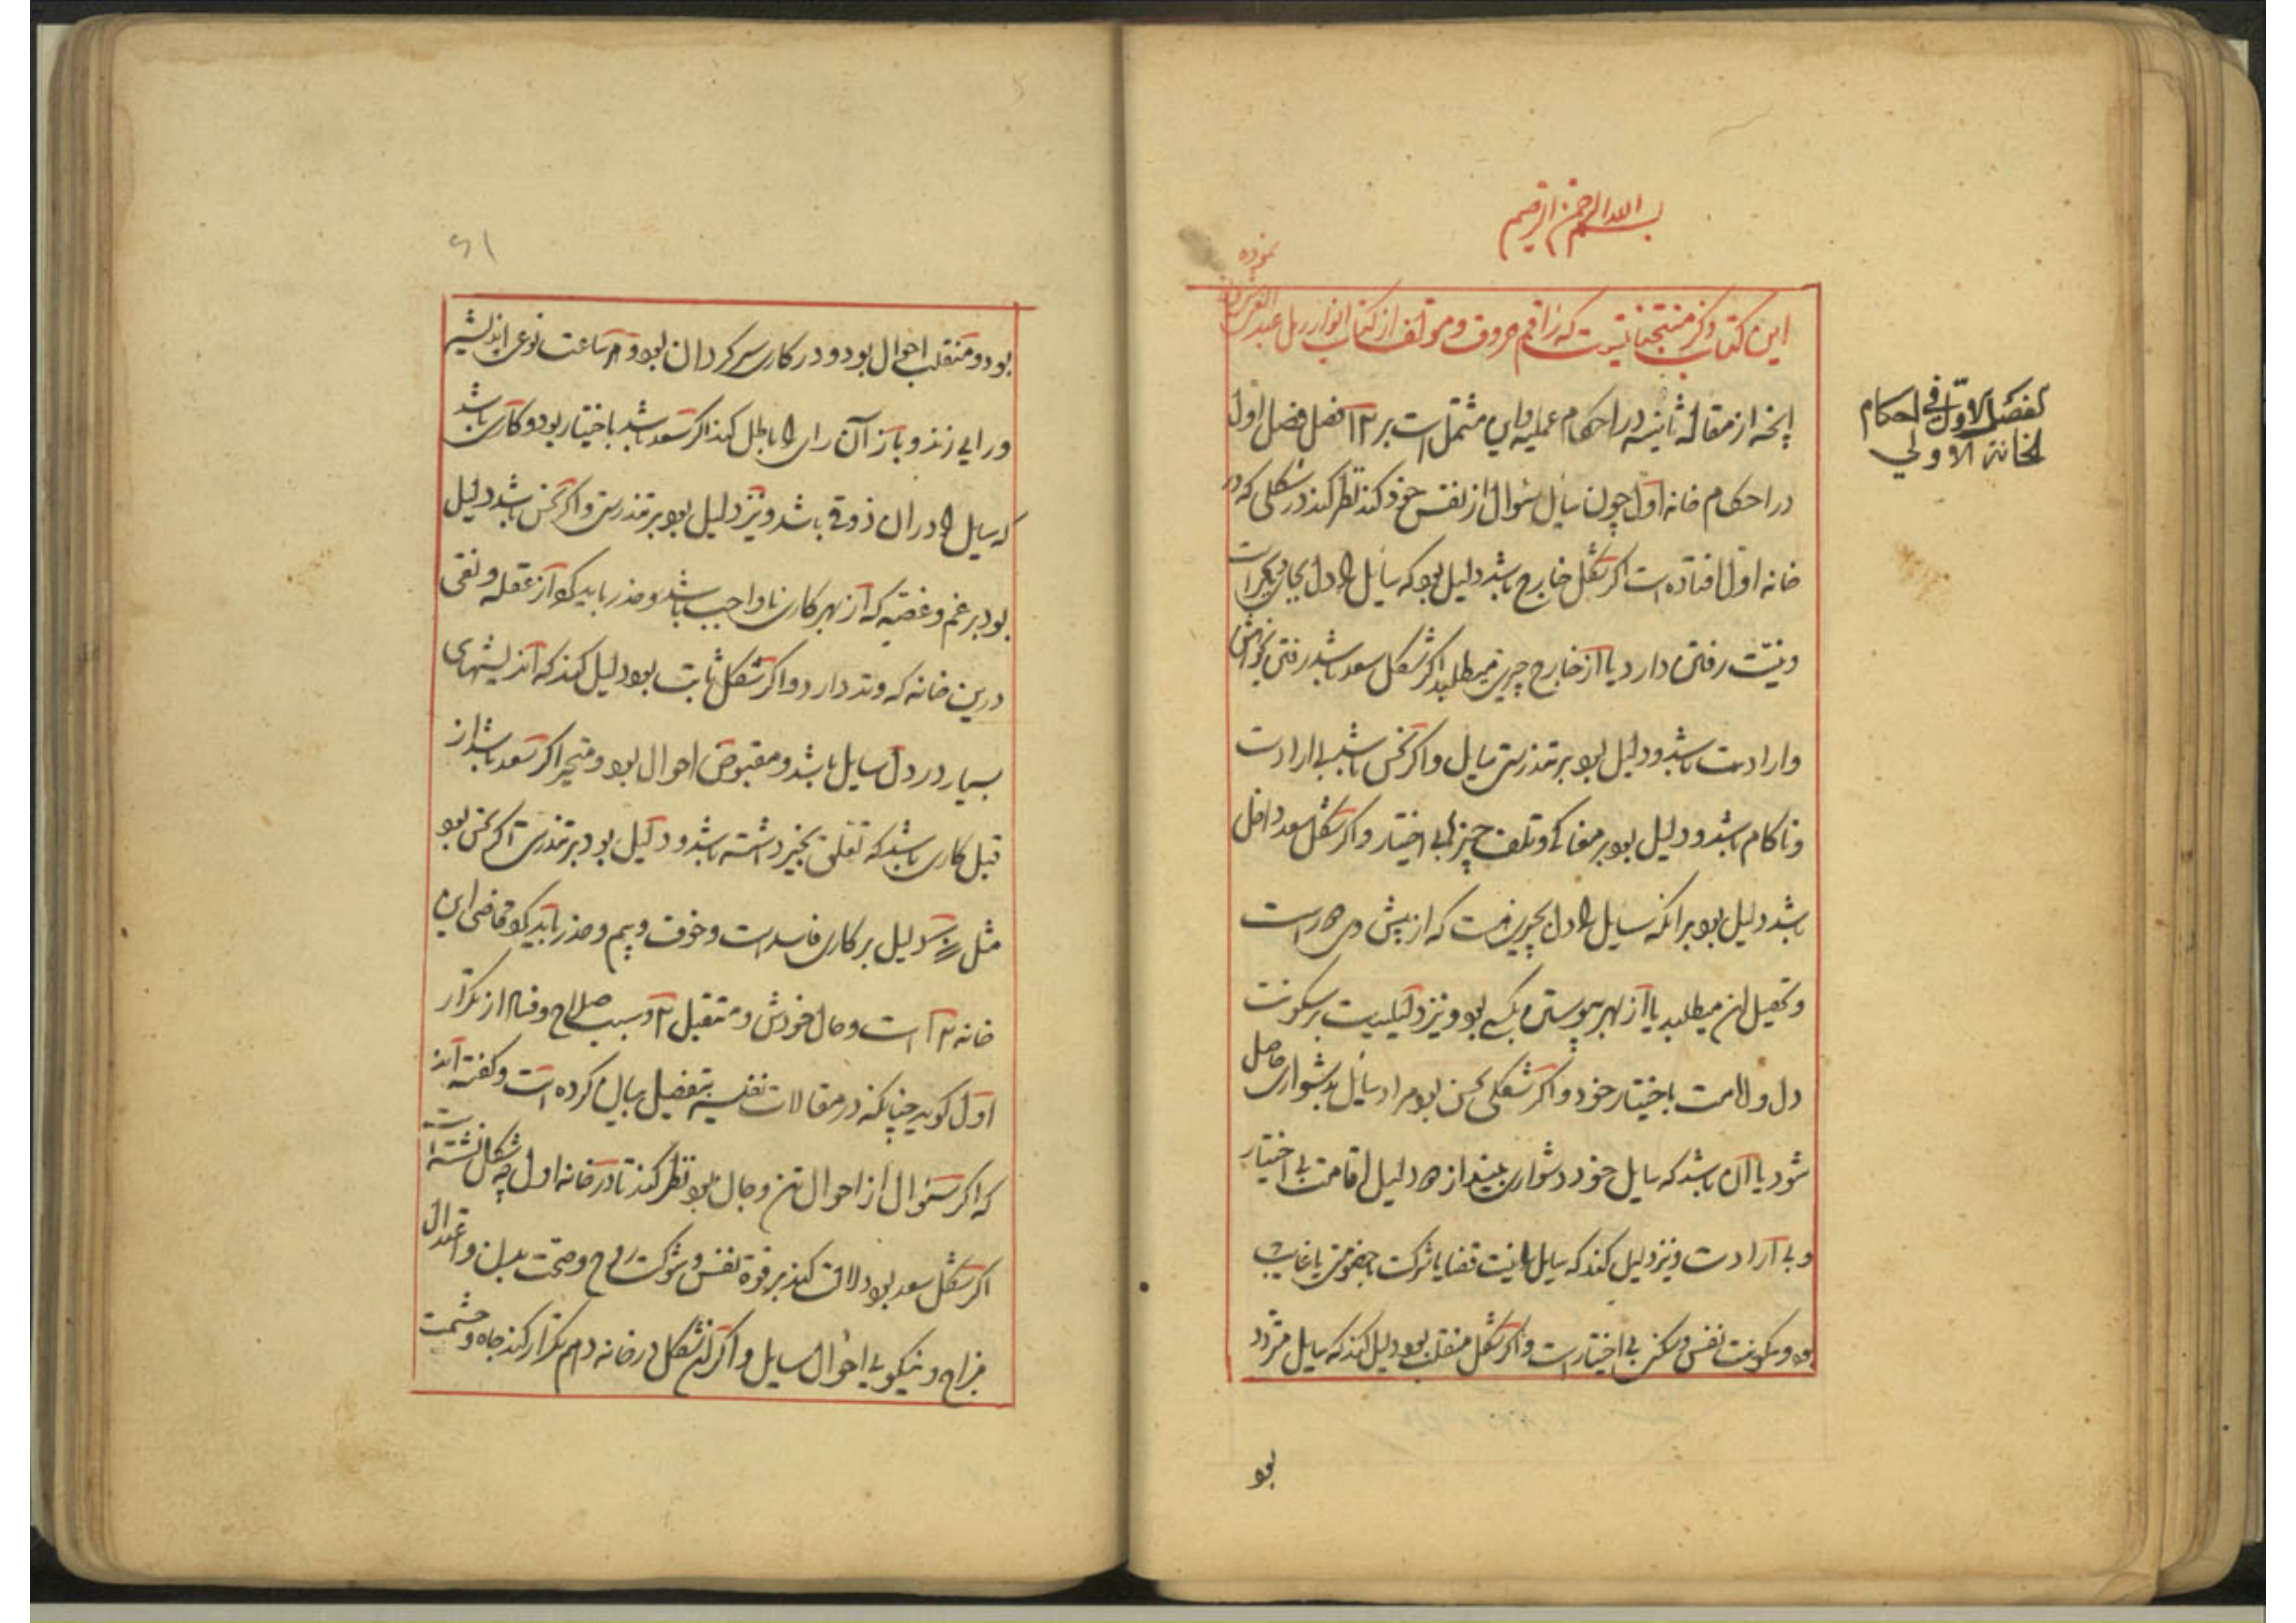 بسم الله الرحمن الرحیم
نموده
این کتاب ذکر منتخباتیست که راقم حروف و مولف از کتاب انوار رمل عبد
انچه از مقاله ثانیه در احکام عملیه و این مشتمل است بر ۱۲ فصل فصل اول
الفصل الاول فی احکام
الخانة الاولی
در احکام خانه اول چون سایل سئوال از نفس خود کند نظر کند در شکلی که در
خانه اول افتاده است اگر شکل خارج باشد دلیل بود که سایل را دل بجای نکرانست
و نیت رفتن دارد یا از خارج چیزی میطلبد اگر شکل سعد باشد رفتن بخواهش
و ارادت باشد و دلیل بود بر تندرستی سایل و اگر نحس باشد بی ارادت
و ناکام باشد و دلیل بود بر مفاجا و تلف چیزها بی اختیار و اگر شکل سعد داخل
باشد دلیل بود بر آنکه سایل را دل بچیزیست که از پیش وی است
و تحصیل آن میطلبد یا از بهر پیوستن بکسی بود و نیز دلیلیست بر سکونت
دل و اقامت باختیار خود و اگر شکلی نحس بود مراد سایل بدشواری حاصل
شود یا آن باشد که سایل خود دشواری بیند از دلیل اقامت بی اختیار
و بی ارادت و نیز دلیل کند که سایل را نیت قضا یا شرکت با خصومتی یا غایب
بود و سکونت نفس و مسکن بی اختیار است و اگر شکل منقلب بود دلیل کند که سایل متردد
بود
۶۱
بود و منقلب احوال بود و در کاری سرکردان بود و هر ساعت نوعی اندیشه
و رایی زند و باز آن رای را باطل کند اگر سعد باشد باختیار بود و کاری باشد
که سایل را در آن ذوقی باشد و نیز دلیل بود بر تندرستی و اگر نحس باشد دلیل
بود بر غم و غصه که از بهر کاری ناواجب باشد و حذر باید کرد از عقله و نقی
درین خانه که وتد دارد و اگر شکل ثابت بود دلیل کند که اندیشهای
بسیار در دل سایل باشد و مقبوض احوال بود و متحیر اگر سعد باشد از
قبل کاری باشد که تعلق بخیر داشته باشد و دلیل بود بر تندرستی اگر نحس بود
مثل دلیل بر کاری فاسد است و خوف و بیم و حذر باید کرد ماضی این
خانه ۱۲ است و حال خودش و مستقبل ۲ و سبب صلاح و فساد از تکرار
اول کوید چنانکه در مقالات نفسیه بتفصیل بیان کرده است و کفته اند
که اگر سئوال از احوال تن و جان بود نظر کند تا در خانه اول چه شکل نشسته است
اگر شکل سعد بود دلالت کند بر قوة نفس و شوکت روح و صحت بدن و اعتدال
مزاج و نیکویی احوال سایل و اگر این شکل در خانه دهم تکرار کند جاه و حشمت